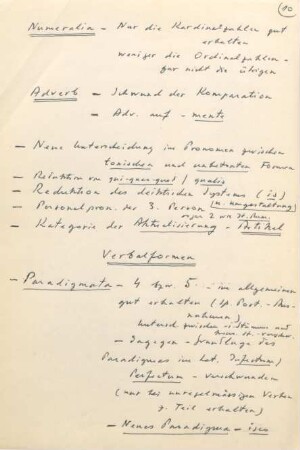 10
Numeralia – Nur die Kardinalzahlen gut
erhalten
weniger die Ordinalzahlen –
gar nicht die übrigen
Adverb – Schwund der Komparation
– Adv. auf -mente
– Neue Unterscheidung im Pronomen zwischen
tonischen und unbetonten Formen
– Reduktion von qui-quae-quod / qualis
– Reduktion des deiktischen Systems (is)
– Personalpron. der 3. Person (u. Umgestaltung)
– Kategorie der Aktualisierung – Artikel
Verbalformen
– Paradigmata – 4 bzw. 5 – im allgemeinen
gut erhalten (Sp. Port. – Aus-
nahmen)
– Dagegen – Grundlage des
Paradigmas im Lat. Infectum /
Perfectum – verschwunden
(nur bei unregelmässigen Verben
z. Teil erhalten)
– Neues Paradigma –